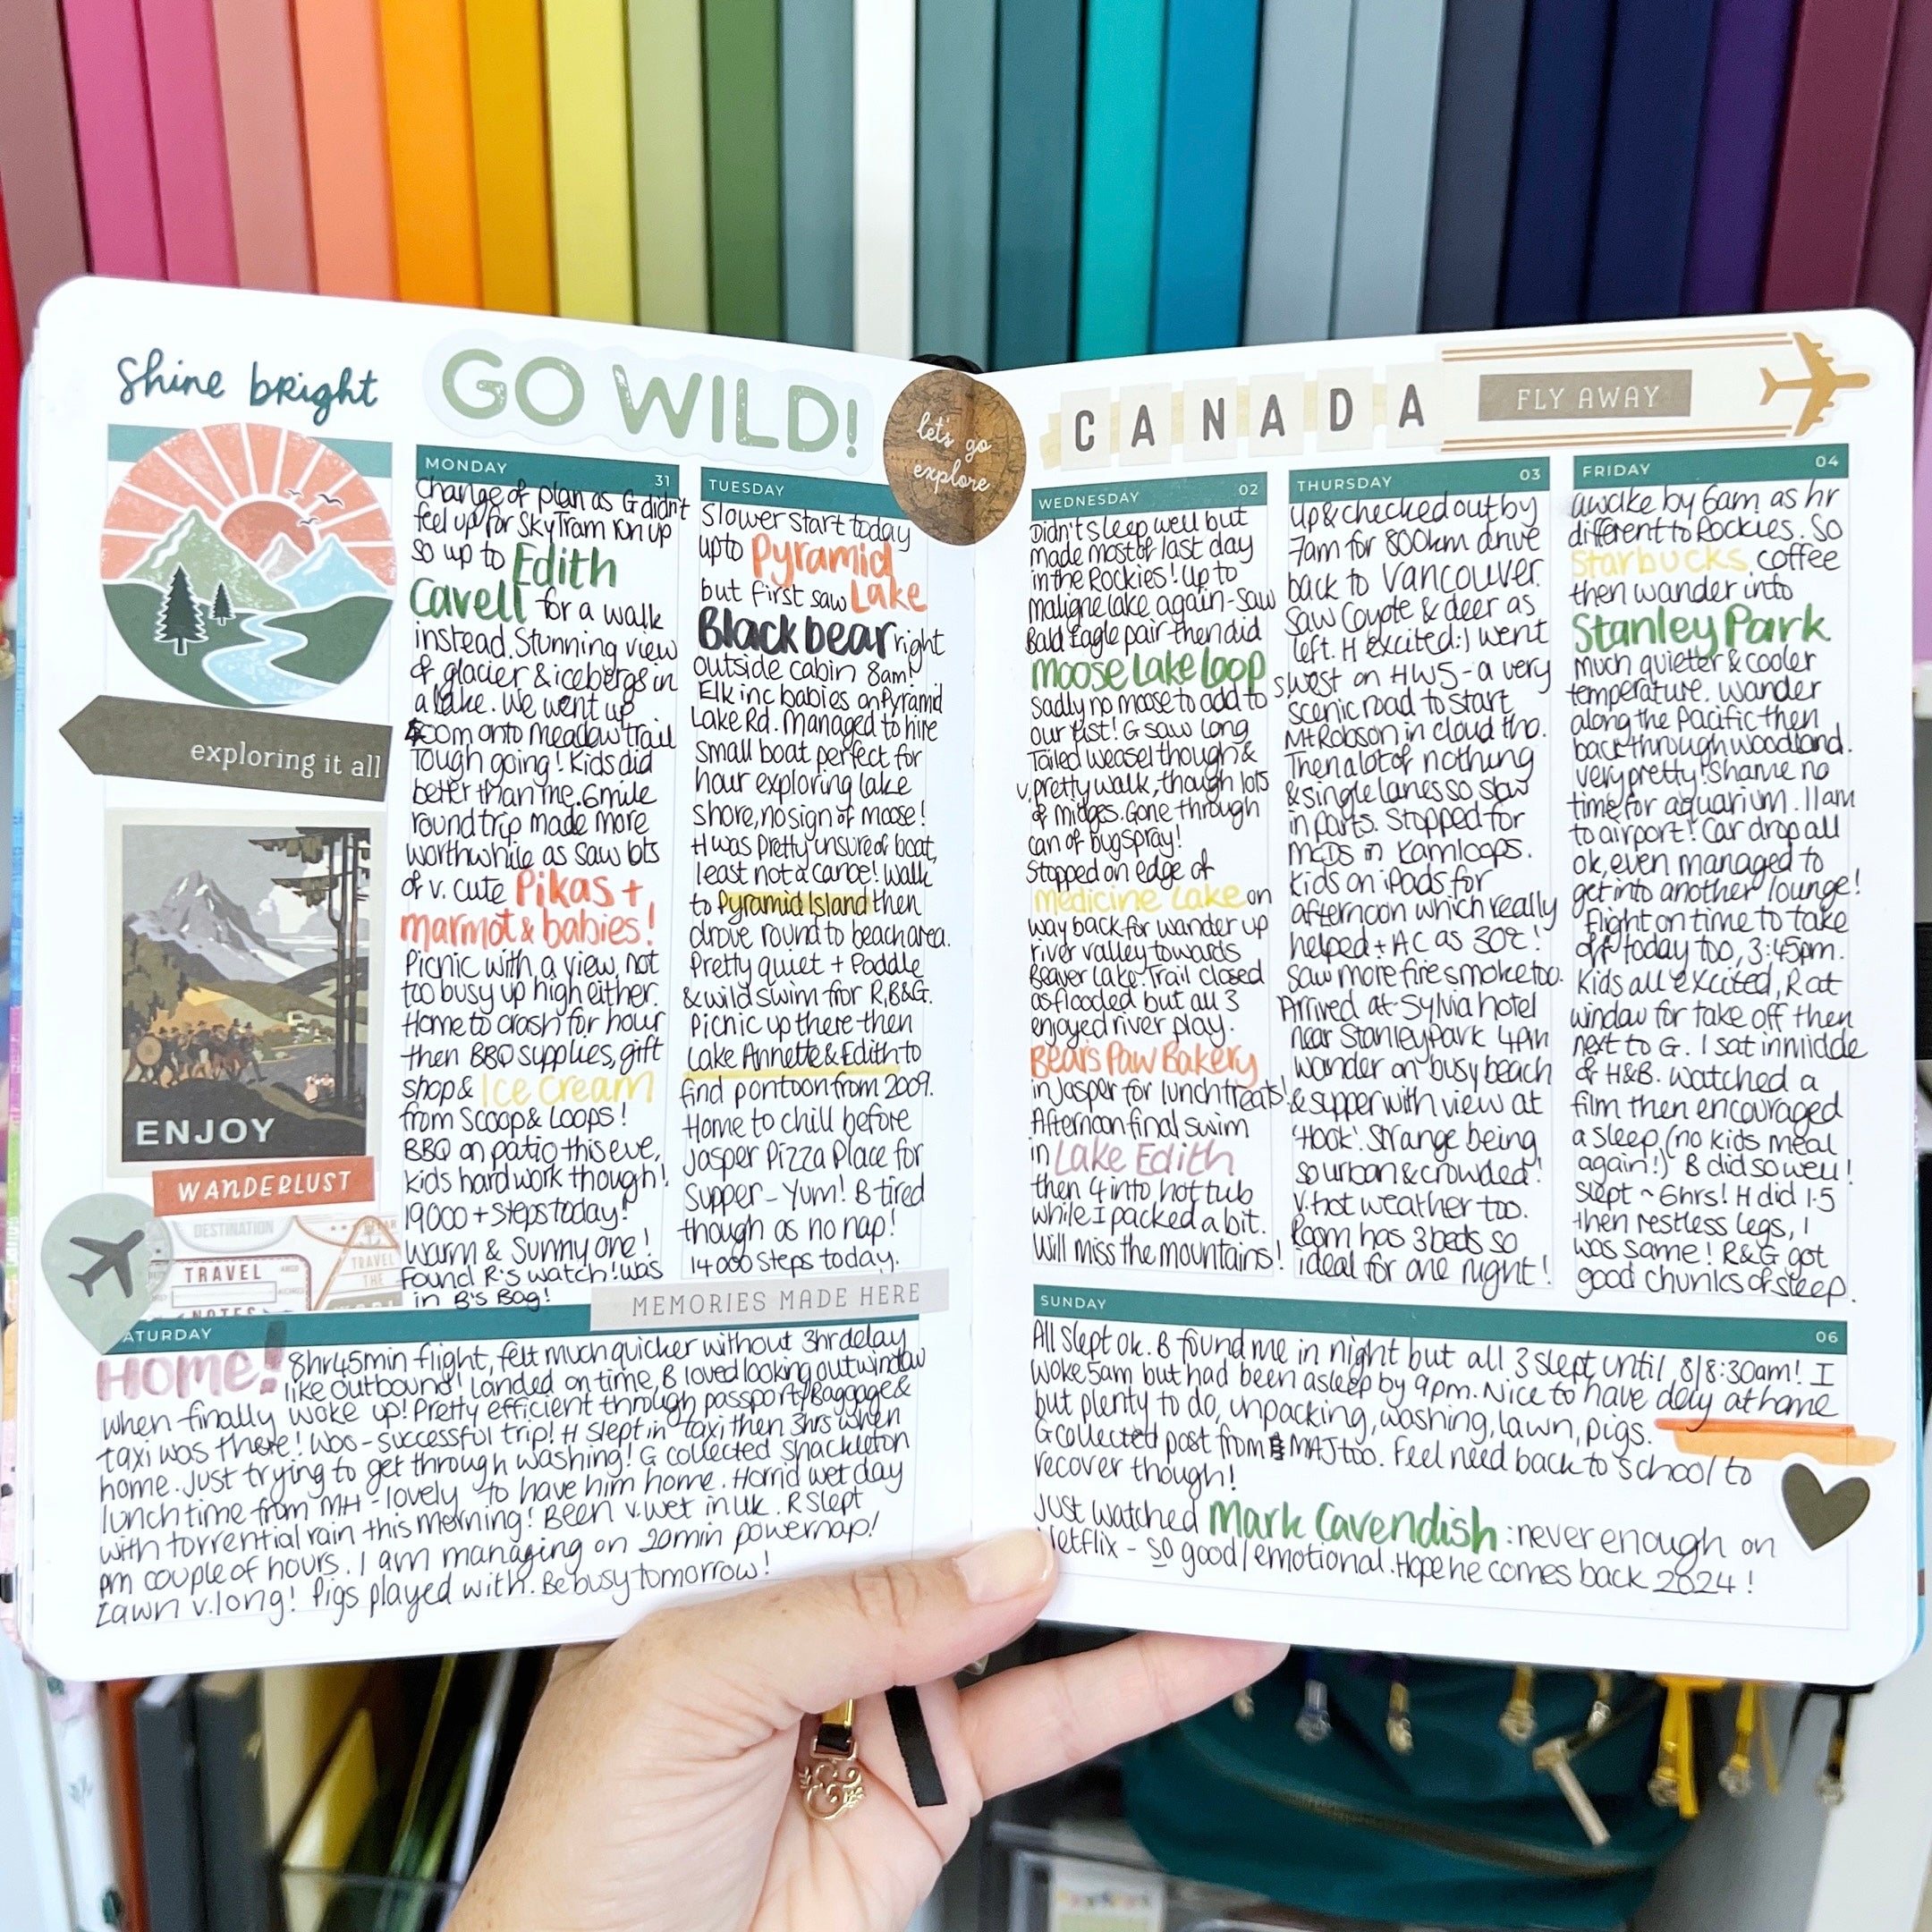 Shine bright
GO WILD!
let's go
explore
CANADA
FLY AWAY
exploring it all
ENJOY
WANDERLUST
DESTINATION
TRAVEL
NOTES
TRAVEL
THE
MONDAY 31
Change of plan as G didn't
feel up for SkyTram run up
so up to Edith
Cavell for a walk
instead. Stunning view
of glacier & icebergs in
a lake. We went up
500m onto meadow trail
Tough going! Kids did
better than me. 6mile
round trip made more
worthwhile as saw lots
of v. cute Pikas +
marmot & babies!
Picnic with a view, not
too busy up high either.
Home to crash for hour
then BBQ supplies, gift
shop & Ice Cream
from Scoop & Loops!
BBQ on patio this eve,
kids hard work though!
19000 + steps today!
Warm & Sunny one!
Found R's watch! was
in B's Bag!
TUESDAY
Slower start today
up to Pyramid
but first saw Lake
Black bear right
outside cabin 8am!
Elk inc babies on Pyramid
Lake Rd. Managed to hire
small boat perfect for
hour exploring lake
shore, no sign of moose!
H was pretty unsure of boat,
least not a canoe! Walk
to Pyramid Island then
drove round to beach area.
Pretty quiet + Paddle
& wild swim for R, B & G.
Picnic up there then
Lake Annette & Edith to
find pontoon from 2009.
Home to chill before
Jasper Pizza Place for
Supper - Yum! B tired
though as no nap!
14000 steps today.
MEMORIES MADE HERE
WEDNESDAY 02
Didn't sleep well but
made most of last day
in the Rockies! Up to
maligne lake again - saw
Bald Eagle pair then did
Moose Lake loop
sadly no moose to add to
our list! G saw long
Tailed weasel though &
v. pretty walk, though lots
of midges. Gone through
can of bug spray!
Stopped on edge of
Medicine Lake on
way back for wander up
river valley towards
Beaver Lake. Trail closed
as flooded but all 3
enjoyed river play.
Bear's Paw Bakery
in Jasper for lunch treats!
Afternoon final swim
in Lake Edith
then 4 into hot tub
while I packed a bit.
Will miss the mountains!
THURSDAY 03
Up & checked out by
7am for 800km drive
back to Vancouver.
Saw Coyote & deer as
left. H excited :) Went
swest on HW5 - a very
scenic road to start
Mt Robson in cloud tho.
Then a lot of nothing
& single lanes so slow
in parts. Stopped for
McDs in Kamloops.
Kids on iPads for
afternoon which really
helped + AC as 30°c!
Saw more fire smoke too.
Arrived at Sylvia hotel
near Stanley Park 4pm
wander on busy beach
& supper with view at
'Hook'. Strange being
so urban & crowded!
V. hot weather too.
Room has 3 beds so
ideal for one night!
FRIDAY 04
awake by 6am as hr
different to Rockies. So
Starbucks coffee
then wander into
Stanley Park.
much quieter & cooler
temperature. Wander
along the Pacific then
back through woodland.
very pretty! Shame no
time for aquarium. 11am
to airport! Car drop all
ok, even managed to
get into another lounge!
Flight on time to take
off today too, 3:45pm.
Kids all excited, R at
window for take off then
next to G. I sat in middle
of H&B. Watched a
film then encouraged
a sleep (no kids meal
again!) B did so well!
Slept ~6hrs! H did 1.5
then restless legs, I
was same! R&G got
good chunks of sleep.
ATURDAY
Home! 8hr45min flight, felt much quicker without 3hr delay
like outbound! Landed on time, B loved looking out window
when finally woke up! Pretty efficient through passport/Baggage &
taxi was there! Woo - successful trip! H slept in taxi then 3hrs when
home. Just trying to get through washing! G collected Shackleton
lunchtime from MH - lovely to have him home. Horrid wet day
with torrential rain this morning! Been v. wet in UK. R slept
pm couple of hours. I am managing on 20min powernap!
Lawn v. long! Pigs played with. Be busy tomorrow!
SUNDAY 06
All slept ok. B found me in night but all 3 slept until 8/8:30am! I
woke 5am but had been asleep by 9pm. Nice to have day at home
but plenty to do, unpacking, washing, lawn, pigs.
G collected post from MAJ too. Feel need back to school to
recover though!
Just watched Mark Cavendish : never enough on
Netflix - so good/emotional. Hope he comes back 2024!